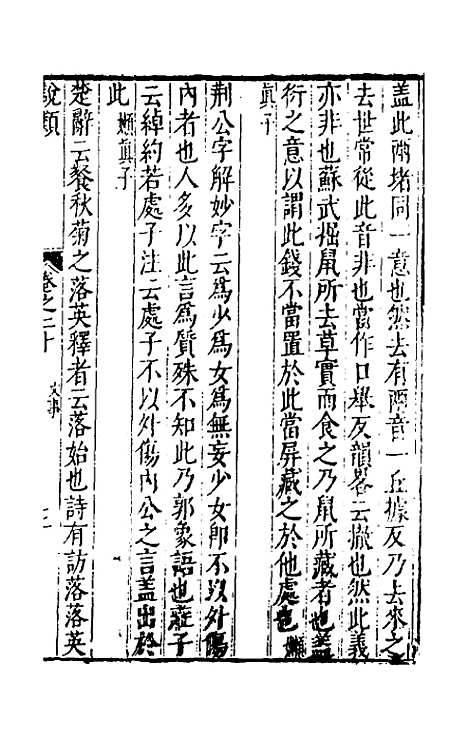 盖此兩堵同一意也然去有兩音一丘據反乃去來之
去世常從此音非也當作口舉反韻畧云撤也然此義
亦非也蘇武掘鼠所去草實而食之乃鼠所藏者也蓋
衍之意以謂此錢不當置於此當屏藏之於他處也 嬾
眞子
荆公字解妙字云爲少爲女爲無妄少女卽不以外傷
內者也人多以此言爲質殊不知此乃郭象語也莊子
云綽約若處子注云處子不以外傷內公之言盖出於
此 嬾眞子
楚辭云餐秋菊之落英釋者云落始也詩有訪落落英
說類 卷之二十 文事